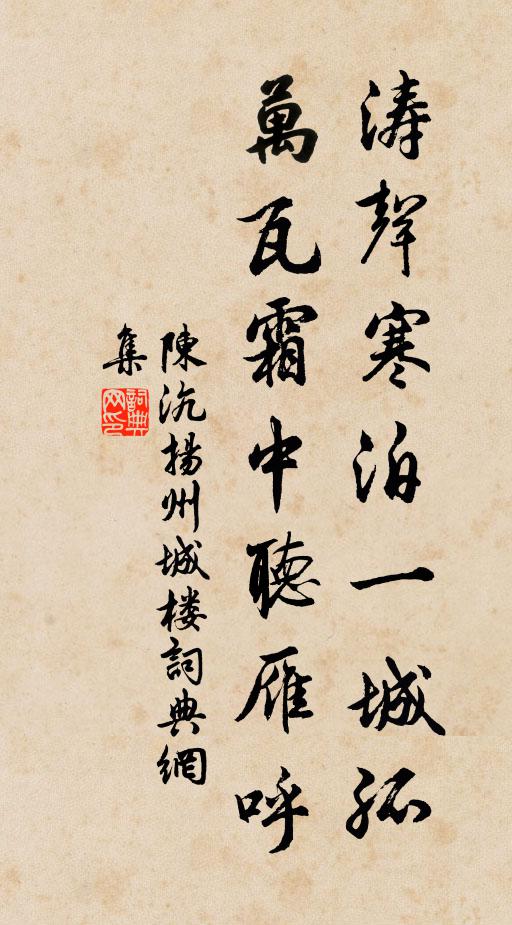 涛聲寒泊一城孤
萬瓦霜中聽雁呼
陳沆揚州城楼詞典網
集
詞典網印